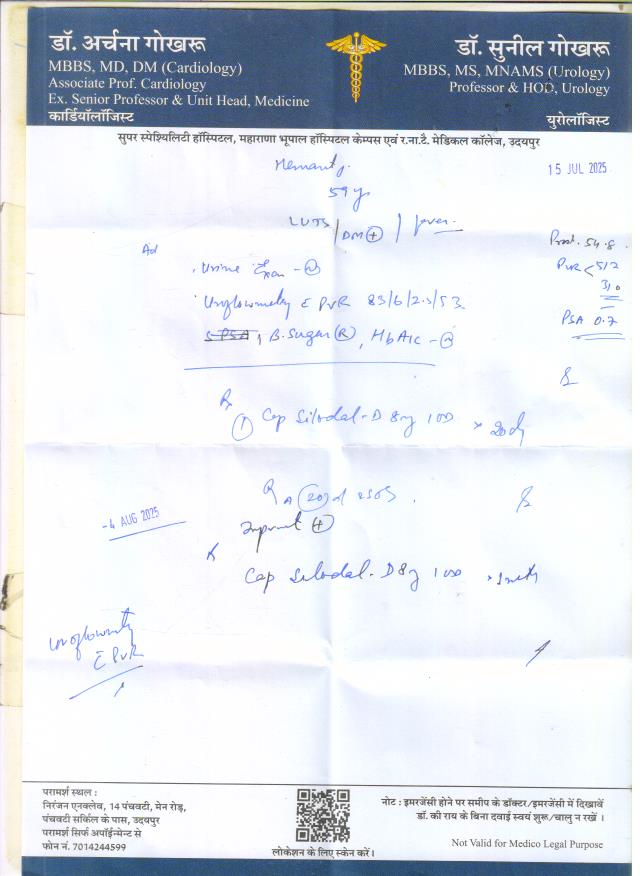 डॉ. अर्चना गोखरू
MBBS, MD, DM (Cardiology)
Associate Prof. Cardiology
Ex. Senior Professor & Unit Head, Medicine
कार्डियॉलॉजिस्ट
डॉ. सुनील गोखरू
MBBS, MS, MNAMS (Urology)
Professor & HOD, Urology
युरोलॉजिस्ट
सुपर स्पेश्यिलिटी हॉस्पिटल, महाराणा भूपाल हॉस्पिटल केम्पस एवं र.ना.टै. मेडिकल कॉलेज, उदयपुर
15 JUL 2025
59 y
LUTS / DM (+) /
Ad
Urine Exam -
Uroflowmetry c PVR 83/6/2.3/53
PSA, B. Sugar (R), HbA1c -
Prost. 54.8
PVR < 512
310
PSA 0.7
Rx
① Cap Silodal-D 8mg 1OD x 20d
-4 AUG 2025
(+)
Cap Silodal-D 8mg 1OD x
Uroflowmetry
c PVR
परामर्श स्थल :
निरंजन एनक्लेव, 14 पंचवटी, मेन रोड़,
पंचवटी सर्किल के पास, उदयपुर
परामर्श सिर्फ अपॉईन्मेन्ट से
फोन नं. 7014244599
लोकेशन के लिए स्केन करें।
नोट : इमरजेंसी होने पर समीप के डॉक्टर/इमरजेंसी में दिखावें
डॉ. की राय के बिना दवाई स्वयं शुरू/चालु न रखें ।
Not Valid for Medico Legal Purpose